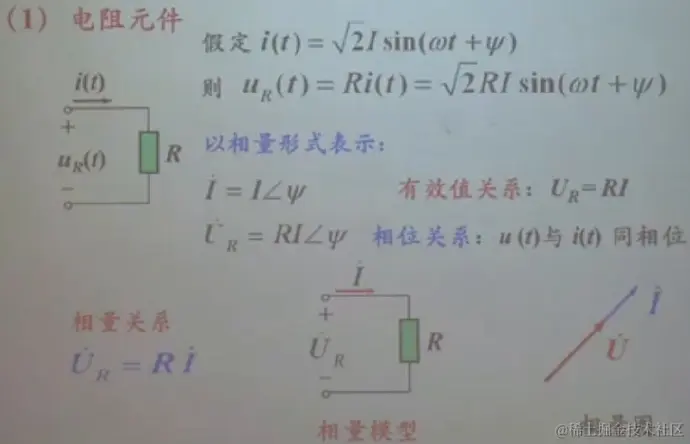 (1) 电阻元件
假定 i(t) = √2I sin(ωt + ψ)
则 u_R(t) = Ri(t) = √2RI sin(ωt + ψ)
i(t)
+
u_R(t)
R
−
以相量形式表示:
İ = I∠ψ 有效值关系: U_R = RI
U̇_R = RI∠ψ 相位关系: u (t)与 i(t) 同相位
相量关系
U̇_R = R İ
İ
+
U̇_R
R
−
相量模型
İ
U̇
相量图
@稀土掘金技术社区